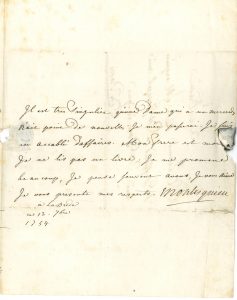 Il est très singulier qu'une Dame qui a un mercredi
n'ait point de nouvelles. Je m'en passerai. Je suis
icy accablé d'affaires. Mon frere est mort.
Je ne lis pas un livre, Je me promene
beaucoup, Je pense souvent a vous, Je vous aime
Je vous presente mes respects. Montesquieu
a la Brede
ce 12. 7bre
1754